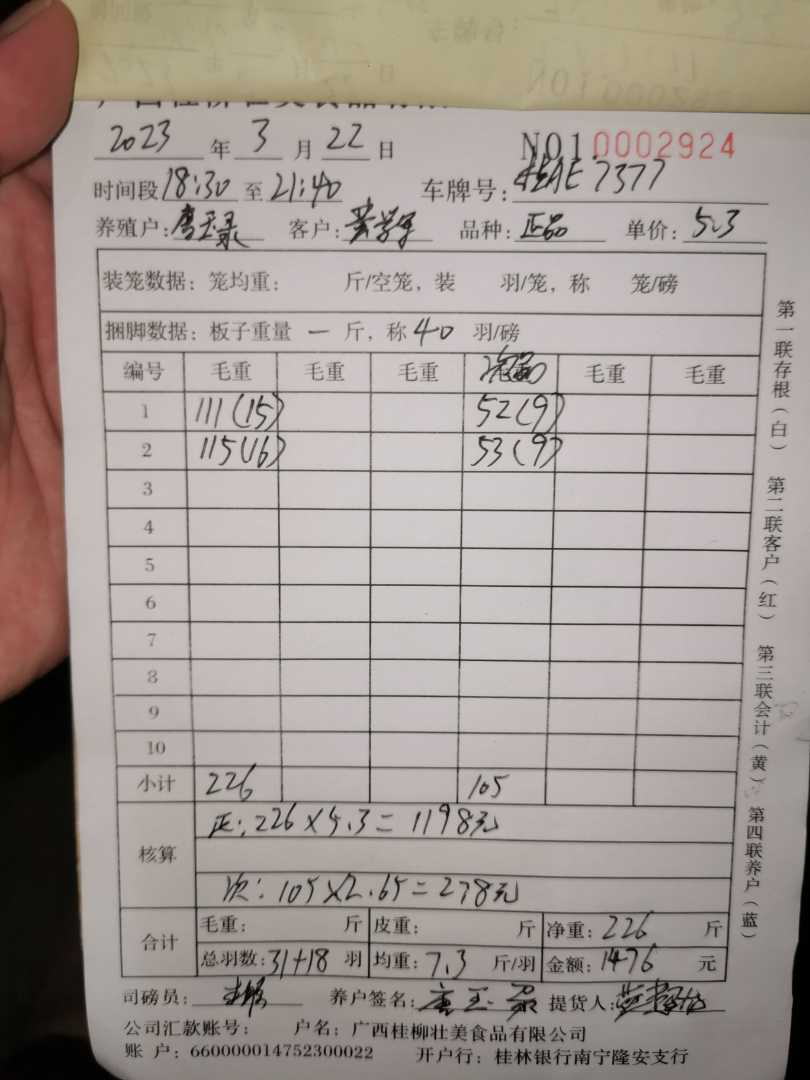 2023 年 3 月 22 日 NO1 0002924
时间段 18:30 至 21:40 车牌号: 桂AE7377
养殖户: 客户: 品种: 正品 单价: 5.3
装笼数据: 笼均重: 斤/空笼, 装 羽/笼, 称 笼/磅
捆脚数据: 板子重量 一 斤, 称 40 羽/磅
编号 毛重 毛重 毛重 毛重 毛重
1 111(15) 52(9)
2 115(16) 53(9)
3
4
5
6
7
8
9
10
小计 226 105
核算 正: 226×5.3=1198元
次: 105×2.65=278元
合计 毛重: 斤 皮重: 斤 净重: 226 斤
总羽数: 31+18 羽 均重: 7.3 斤/羽 金额: 1476 元
司磅员: 养户签名: 提货人:
公司汇款账号: 户名: 广西桂柳壮美食品有限公司
账 户: 660000014752300022 开户行: 桂林银行南宁隆安支行
第一联存根(白) 第二联客户(红) 第三联会计(黄) 第四联养户(蓝)